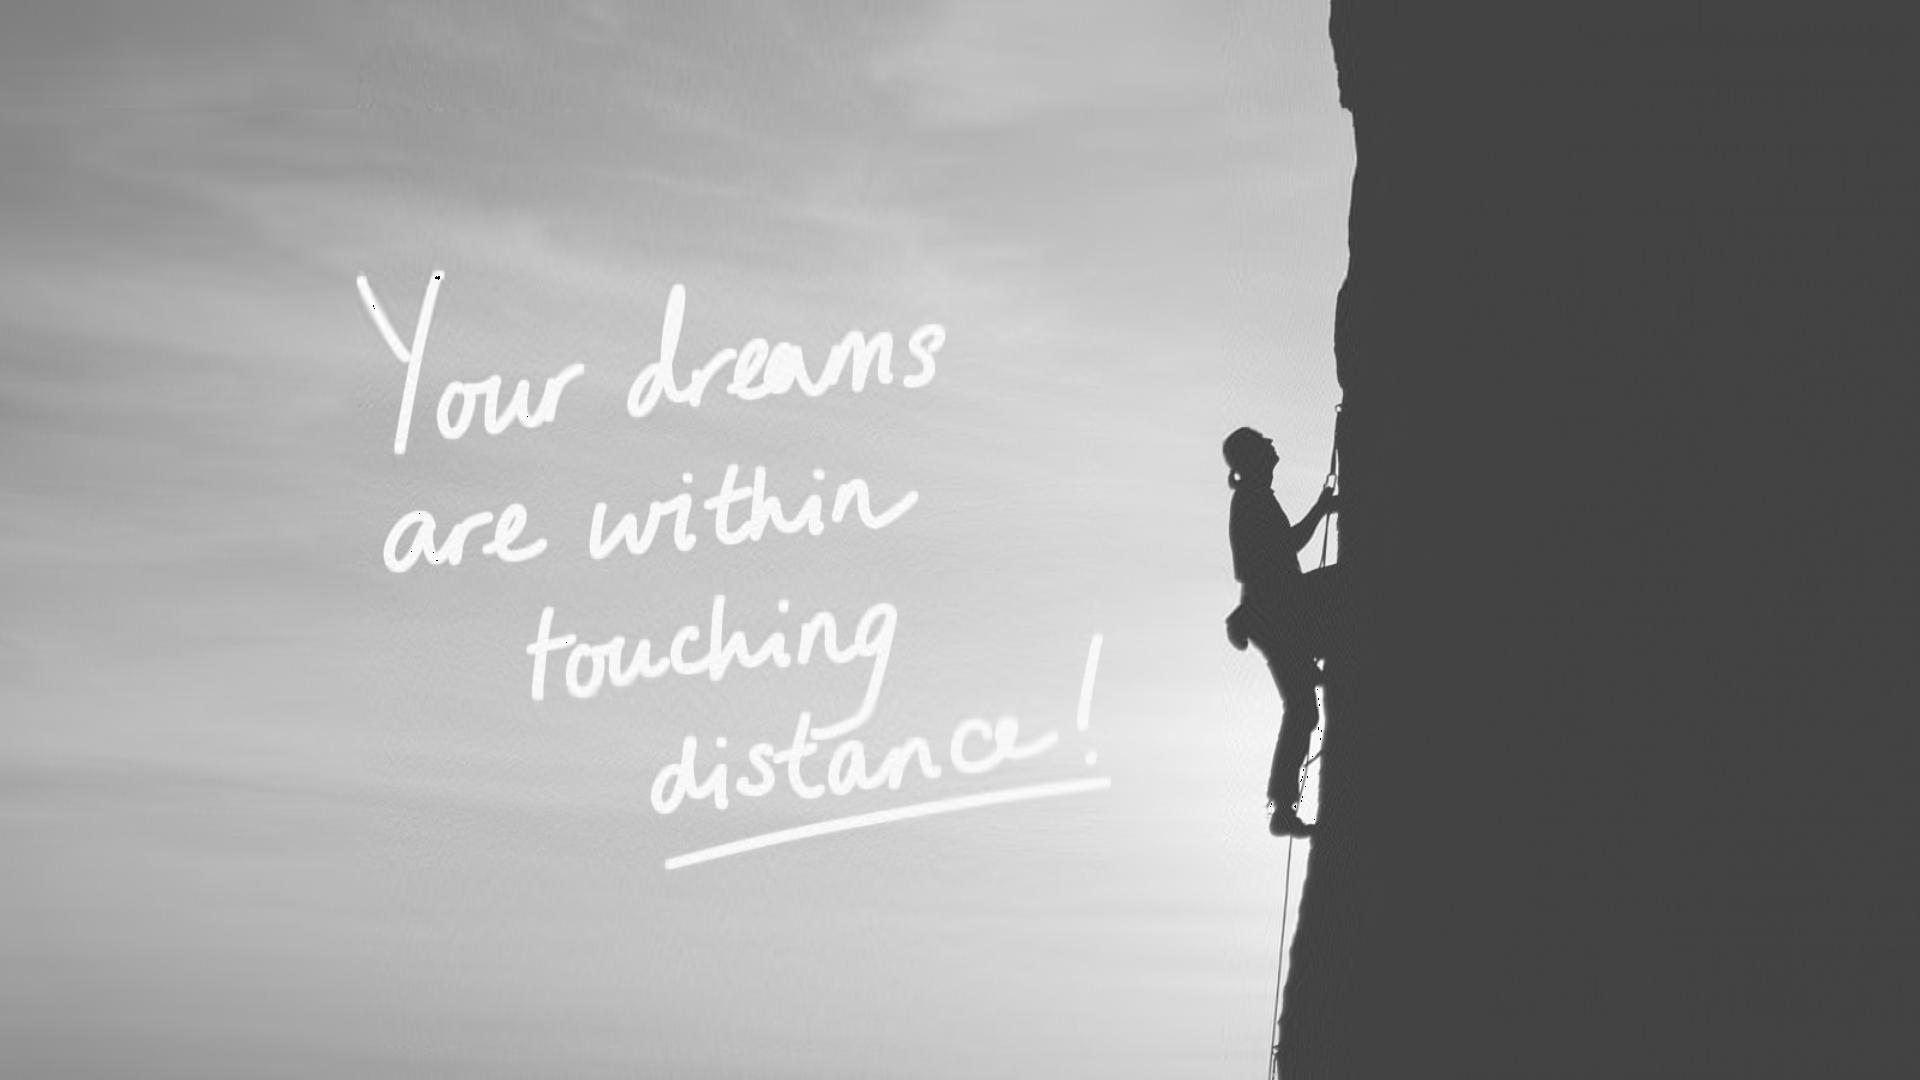 Your dreams
are within
touching
distance!